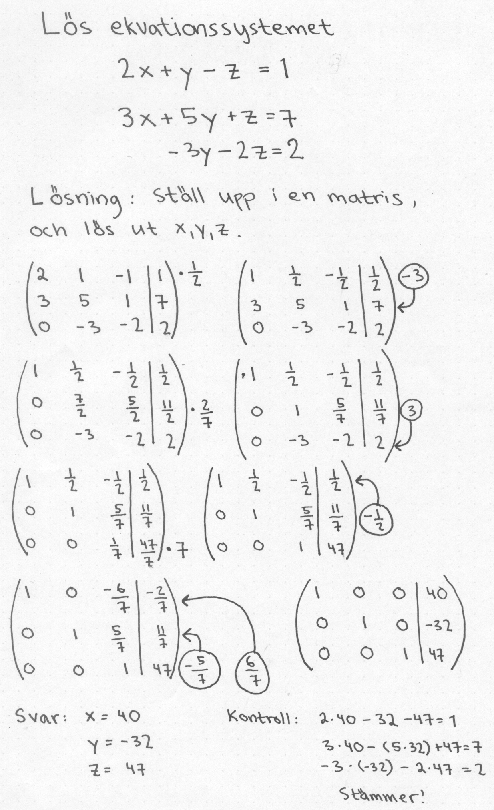 Lös ekvationssystemet
2x + y - z = 1
3x + 5y + z = 7
-3y - 2z = 2
Lösning: Ställ upp i en matris,
och lös ut x, y, z.
(2 1 -1 | 1) · 1/2
(3 5 1 | 7)
(0 -3 -2 | 2)
(1 1/2 -1/2 | 1/2) -3
(3 5 1 | 7)
(0 -3 -2 | 2)
(1 1/2 -1/2 | 1/2)
(0 7/2 5/2 | 11/2) · 2/7
(0 -3 -2 | 2)
(1 1/2 -1/2 | 1/2)
(0 1 5/7 | 11/7) 3
(0 -3 -2 | 2)
(1 1/2 -1/2 | 1/2)
(0 1 5/7 | 11/7)
(0 0 1/7 | 47/7) · 7
(1 1/2 -1/2 | 1/2)
(0 1 5/7 | 11/7) -1/2
(0 0 1 | 47)
(1 0 -6/7 | -2/7)
(0 1 5/7 | 11/7)
(0 0 1 | 47) -5/7 6/7
(1 0 0 | 40)
(0 1 0 | -32)
(0 0 1 | 47)
Svar: x = 40
y = -32
z = 47
Kontroll: 2·40 - 32 - 47 = 1
3·40 - (5·32) + 47 = 7
-3·(-32) - 2·47 = 2
Stämmer!